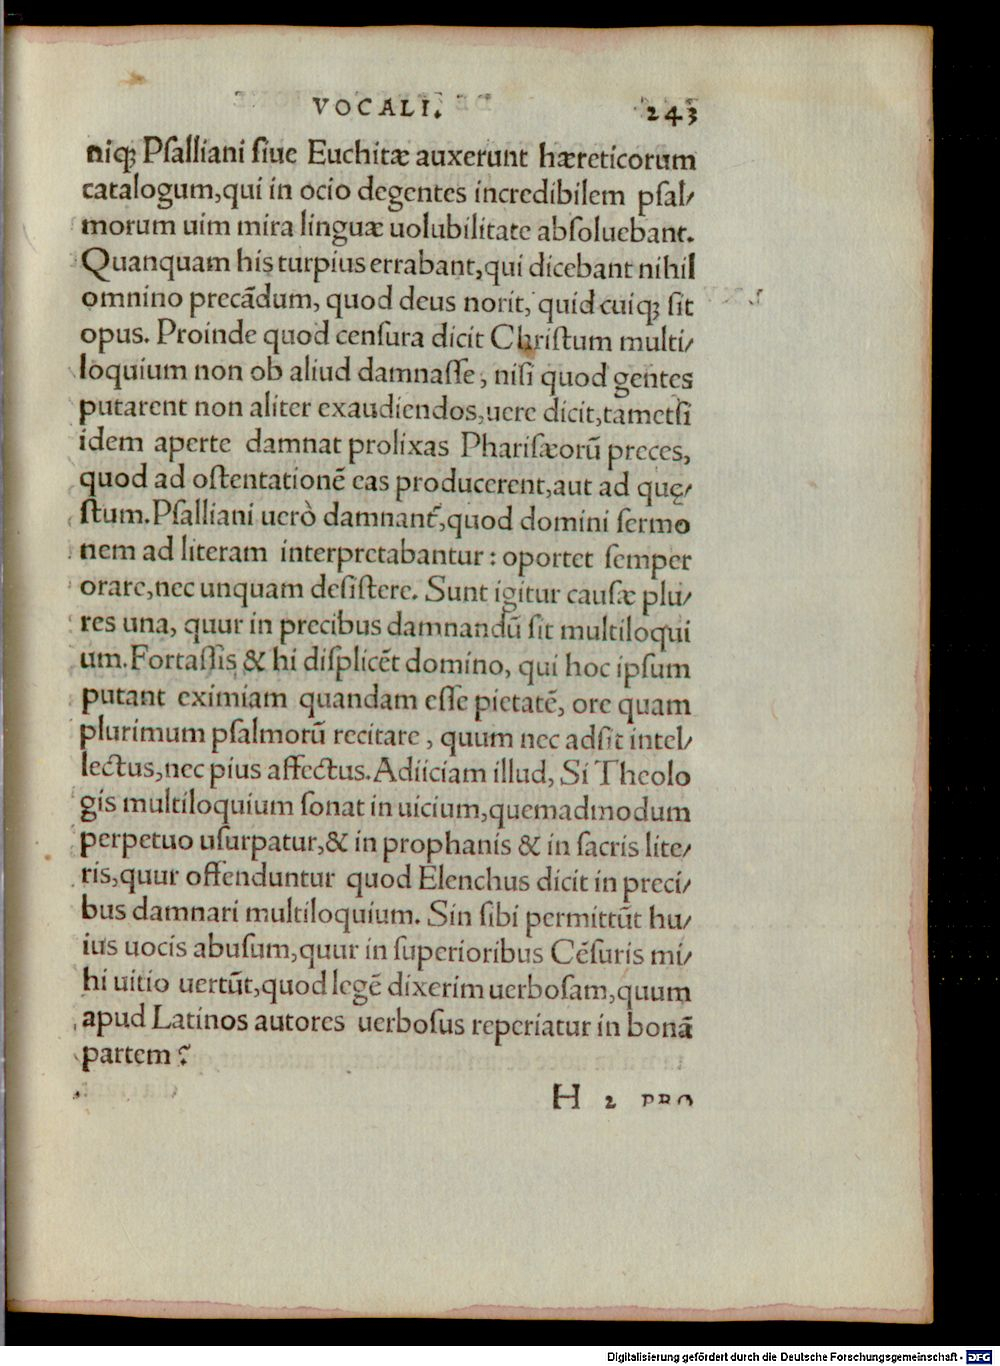 VOCALI. 243
niq; Pſalliani ſiue Euchitæ auxerunt hæreticorum
catalogum,qui in ocio degentes incredibilem pſal/
morum uim mira linguæ uolubilitate abſoluebant.
Quanquam his turpius errabant,qui dicebant nihil
omnino precãdum, quod deus norit, quid cuiq; ſit
opus. Proinde quod cenſura dicit Chriſtum multi/
loquium non ob aliud damnaſſe, niſi quod gentes
putarent non aliter exaudiendos,uere dicit,tametſi
idem aperte damnat prolixas Phariſæorũ preces,
quod ad oſtentationẽ eas producerent,aut ad quę/
ſtum.Pſalliani uerò damnant̃,quod domini ſermo
nem ad literam interpretabantur: oportet ſemper
orare,nec unquam deſiſtere. Sunt igitur cauſæ plu/
res una, quur in precibus damnandũ ſit multiloqui
um.Fortaſſis & hi diſplicẽt domino, qui hoc ipſum
putant eximiam quandam eſſe pietatẽ, ore quam
plurimum pſalmorũ recitare, quum nec adſit intel/
lectus,nec pius affectus.Adiiciam illud, Si Theolo
gis multiloquium ſonat in uicium,quemadmodum
perpetuo uſurpatur,& in prophanis & in ſacris lite/
ris,quur offenduntur quod Elenchus dicit in preci/
bus damnari multiloquium. Sin ſibi permittũt hu/
ius uocis abuſum,quur in ſuperioribus Cẽſuris mi/
hi uitio uertũt,quod legẽ dixerim uerboſam,quum
apud Latinos autores uerboſus reperiatur in bonã
partem?
H 2 PRO
Digitalisierung gefördert durch die Deutsche Forschungsgemeinschaft - DFG